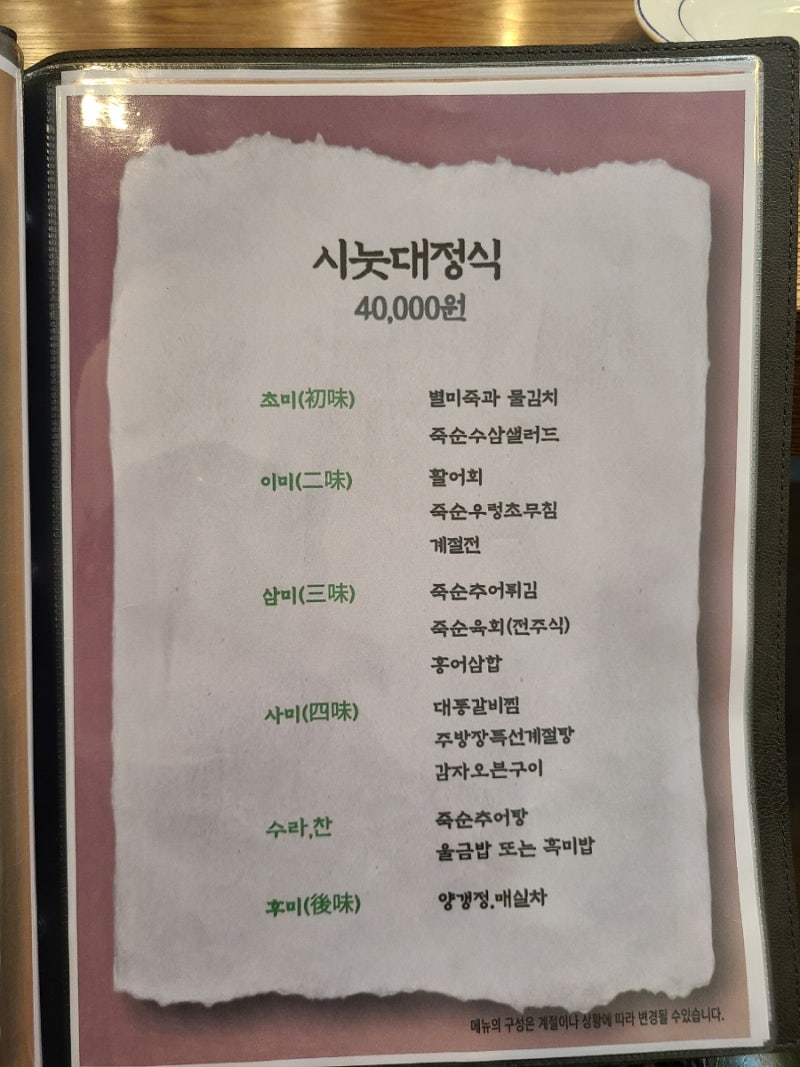 시눗대정식
40,000원
초미(初味) 별미죽과 물김치
죽순수삼샐러드
이미(二味) 활어회
죽순우렁초무침
계절전
삼미(三味) 죽순추어튀김
죽순육회(전주식)
홍어삼합
사미(四味) 대통갈비찜
주방장특선계절탕
감자오븐구이
수라,찬 죽순추어탕
울금밥 또는 흑미밥
후미(後味) 양갱정.매실차
메뉴의 구성은 계절이나 상황에 따라 변경될 수있습니다.